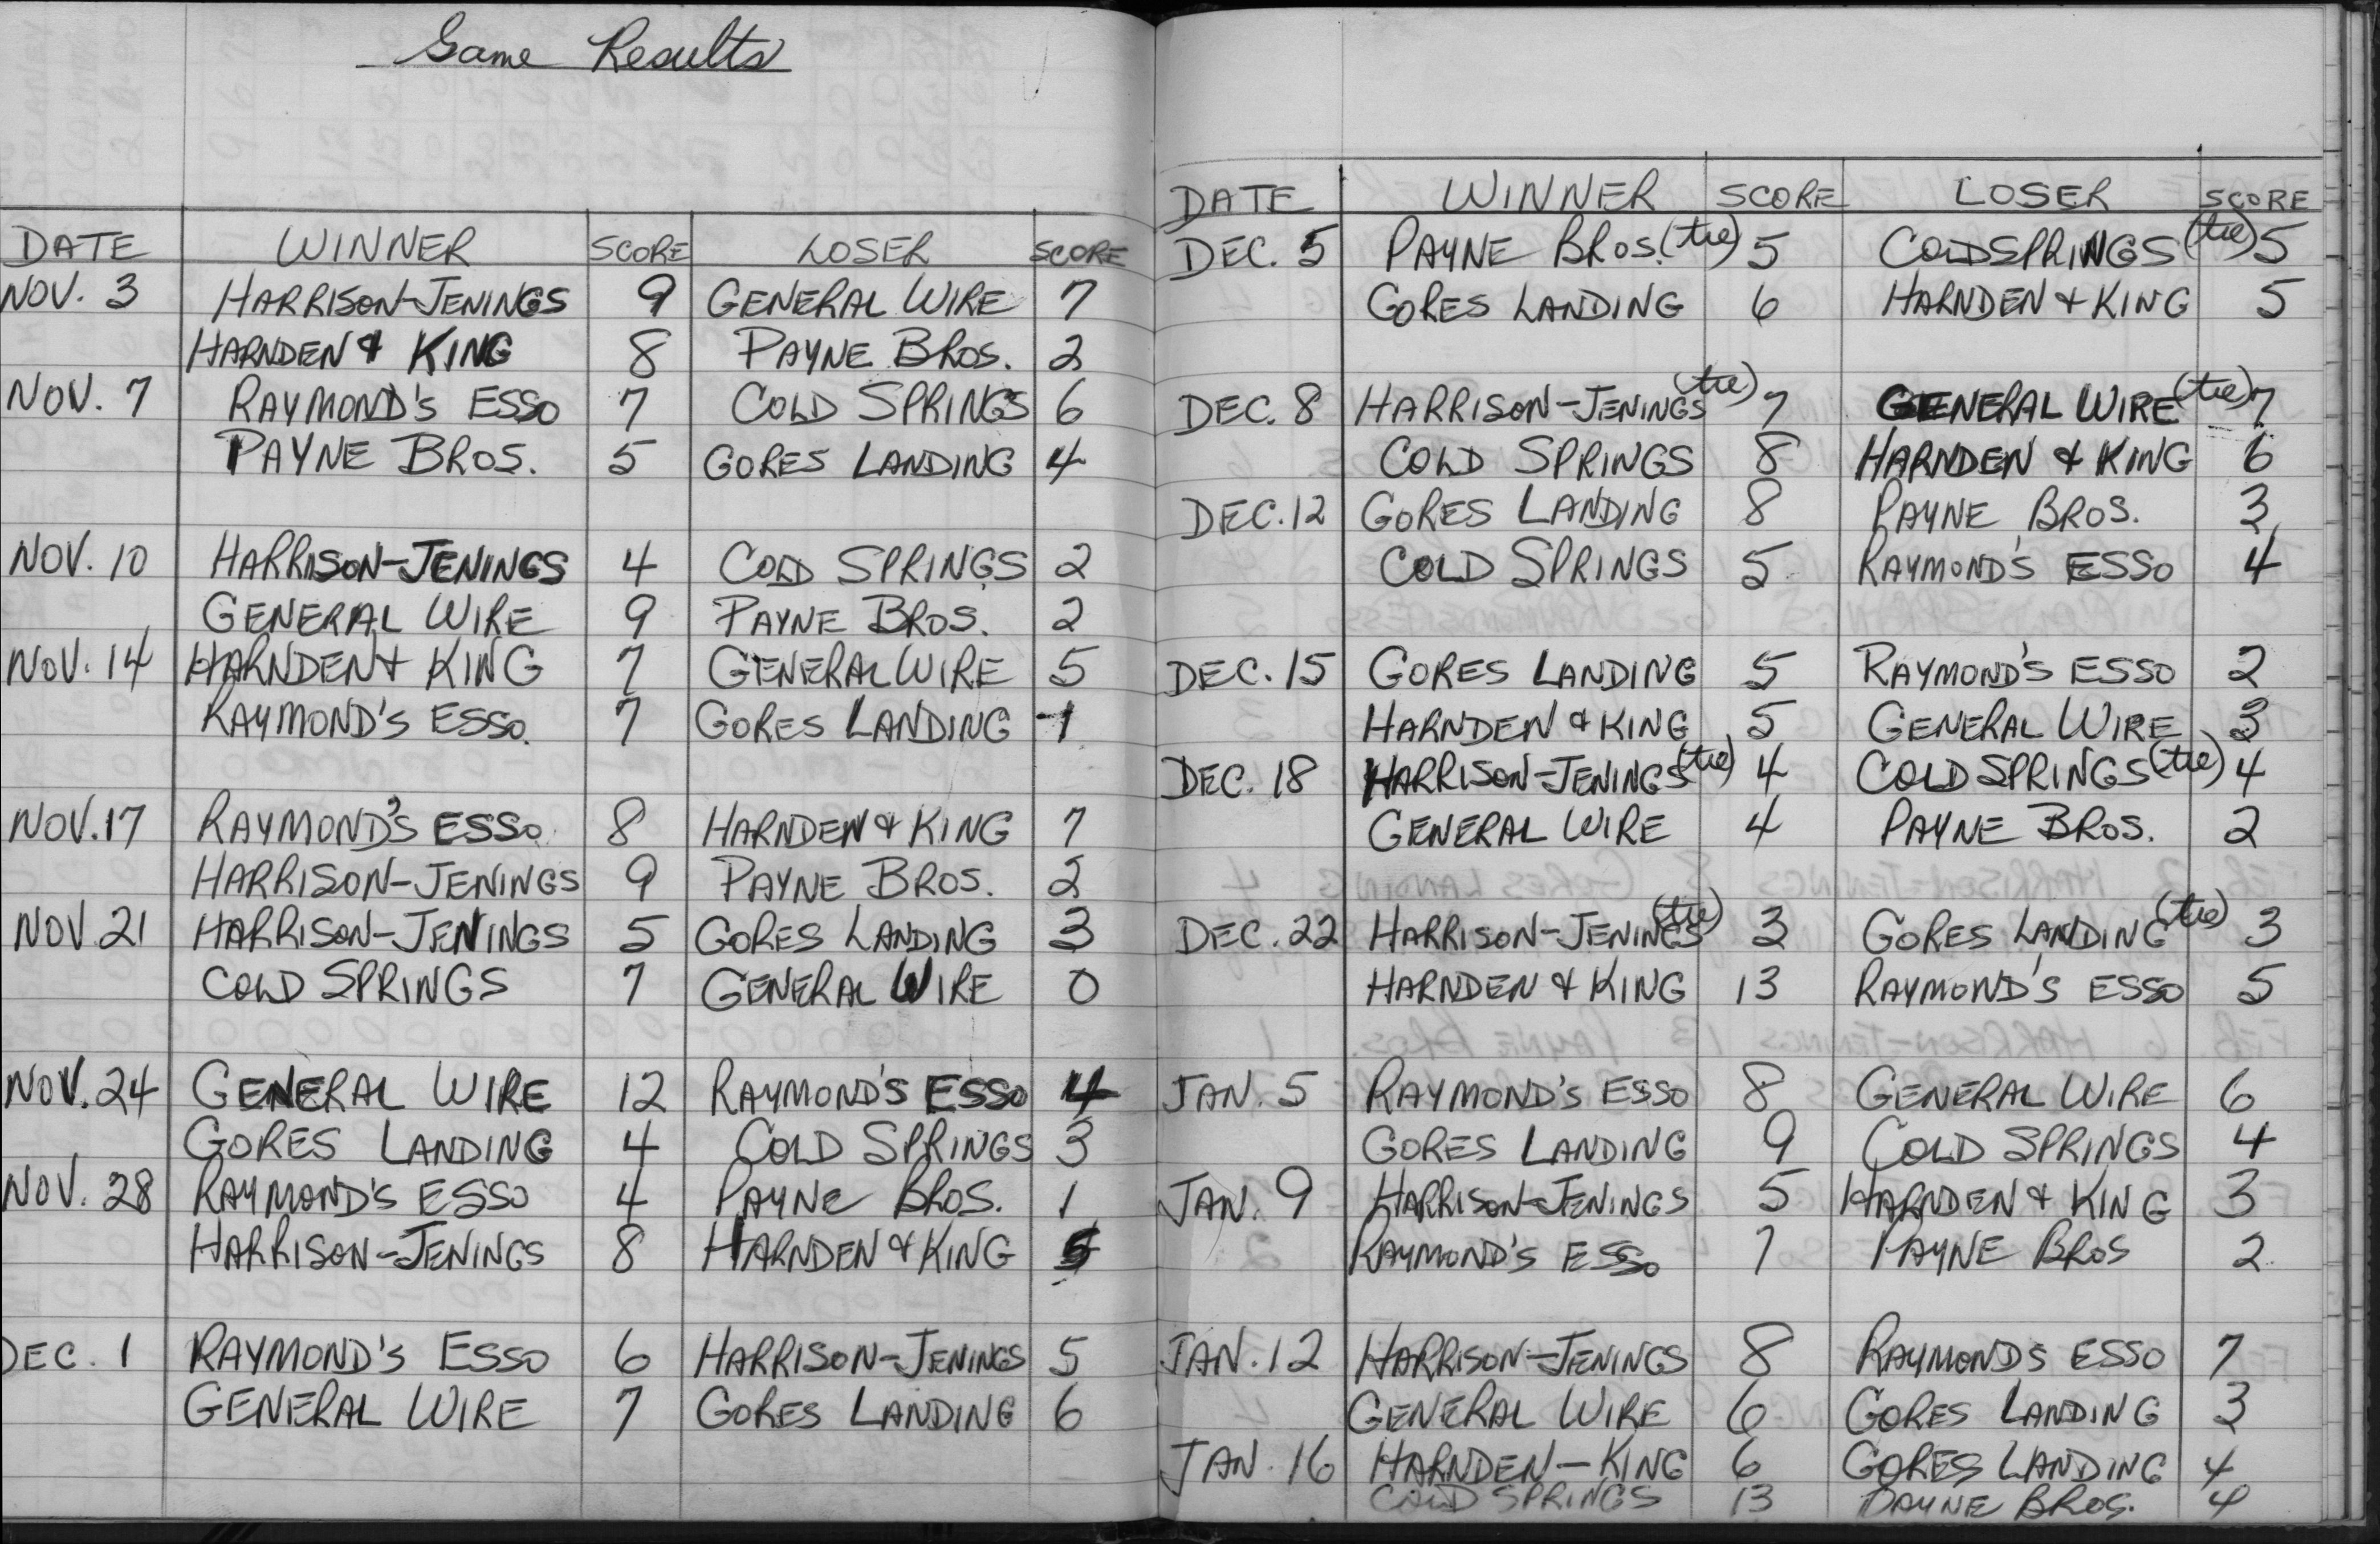 Game Results
DATE WINNER SCORE LOSER SCORE
NOV. 3 HARRISON-JENINGS 9 GENERAL WIRE 7
HARNDEN & KING 8 PAYNE BROS. 2
NOV. 7 RAYMOND'S ESSO 7 COLD SPRINGS 6
PAYNE BROS. 5 GORES LANDING 4
NOV. 10 HARRISON-JENINGS 4 COLD SPRINGS 2
GENERAL WIRE 9 PAYNE BROS. 2
NOV. 14 HARNDEN & KING 7 GENERAL WIRE 5
RAYMOND'S ESSO. 7 GORES LANDING 1
NOV. 17 RAYMOND'S ESSO. 8 HARNDEN & KING 7
HARRISON-JENINGS 9 PAYNE BROS. 2
NOV. 21 HARRISON-JENINGS 5 GORES LANDING 3
COLD SPRINGS 7 GENERAL WIRE 0
NOV. 24 GENERAL WIRE 12 RAYMOND'S ESSO 4
GORES LANDING 4 COLD SPRINGS 3
NOV. 28 RAYMOND'S ESSO 4 PAYNE BROS. 1
HARRISON-JENINGS 8 HARNDEN & KING 5
DEC. 1 RAYMOND'S ESSO 6 HARRISON-JENINGS 5
GENERAL WIRE 7 GORES LANDING 6
DATE WINNER SCORE LOSER SCORE
DEC. 5 PAYNE BROS. (tie) 5 COLDSPRINGS (tie) 5
GORES LANDING 6 HARNDEN & KING 5
DEC. 8 HARRISON-JENINGS (tie) 7 GENERAL WIRE (tie) 7
COLD SPRINGS 8 HARNDEN & KING 6
DEC. 12 GORES LANDING 8 PAYNE BROS. 3
COLD SPRINGS 5 RAYMOND'S ESSO 4
DEC. 15 GORES LANDING 5 RAYMOND'S ESSO 2
HARNDEN & KING 5 GENERAL WIRE 3
DEC. 18 HARRISON-JENINGS (tie) 4 COLD SPRINGS (tie) 4
GENERAL WIRE 4 PAYNE BROS. 2
DEC. 22 HARRISON-JENINGS (tie) 3 GORES LANDING (tie) 3
HARNDEN & KING 13 RAYMOND'S ESSO 5
JAN. 5 RAYMOND'S ESSO 8 GENERAL WIRE 6
GORES LANDING 9 COLD SPRINGS 4
JAN. 9 HARRISON-JENINGS 5 HARNDEN & KING 3
RAYMOND'S ESSO 7 PAYNE BROS 2
JAN. 12 HARRISON-JENINGS 8 RAYMOND'S ESSO 7
GENERAL WIRE 6 GORES LANDING 3
JAN. 16 HARNDEN-KING 6 GORES LANDING 4
COLD SPRINGS 13 PAYNE BROS. 4